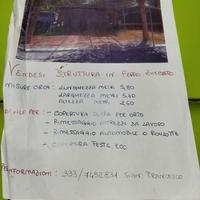 VENDESI STRUTTURA IN FERRO ZINCATO
MISURE CIRCA: LUNGHEZZA METRI 5,80
LARGHEZZA METRI 5,40
ALTEZZA METRI 2,60
PER: - COPERTURA PER ORTO
- RIMESSAGGIO ATTREZZI DA LAVORO
- RIMESSAGGIO AUTOMOBILE O ROULOTTE
- FESTE, ECC.
INFORMAZIONI: 333/7492831 FRANCESCO